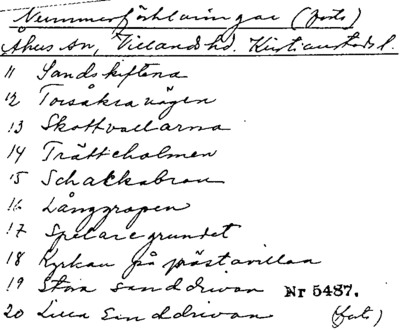 Nummerförklaringar (forts)
Åhus sn, Villands hd. Kristianstads l.
11 Sandskiftena
12 Torsåkravägen
13 Skottvallarna
14 Trätteholmen
15 Schakkabron
16 Långgropen
17 Spelaregrundet
18 Kyrkan på prästavillan
19 Stora sanddrivan Nr 5487.
20 Lilla Sanddrivan (forts.)